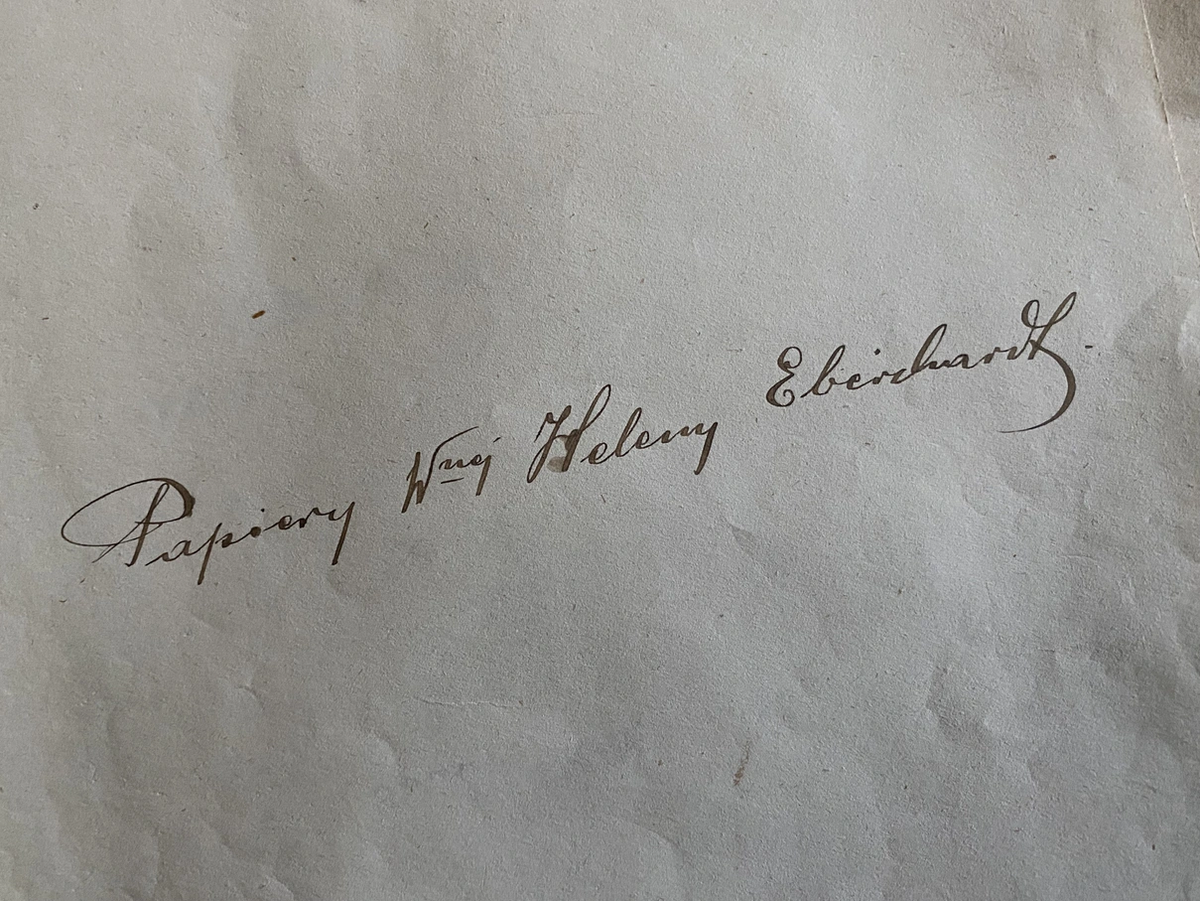 Papiery Wnej Heleny Eberhardt.